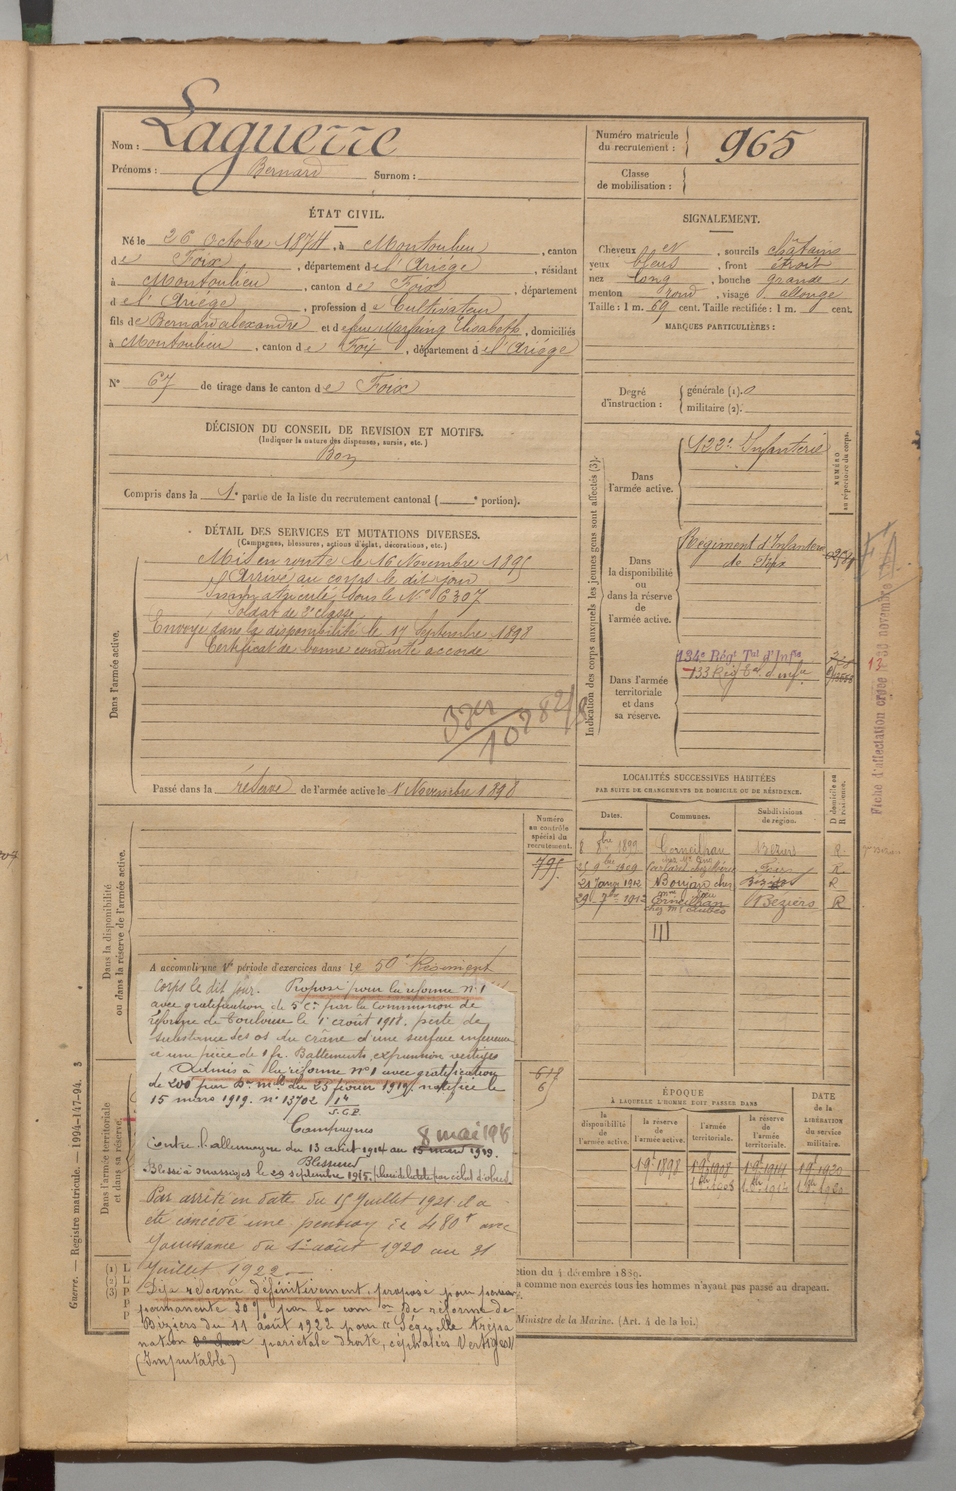 Nom : Laguerre
Prénoms : Bernard Surnom :
Numéro matricule
du recrutement : 965
Classe
de mobilisation :
ÉTAT CIVIL.
Né le 26 Octobre 1874, à Montoulieu, canton
de Foix, département de l'Ariége, résidant
à Montoulieu, canton de Foix, département
de l'Ariége, profession de Cultivateur
fils de Bernard alexandre et de feue Marfaing Elisabeth, domiciliés
à Montoulieu, canton de Foix, département de l'Ariége
N° 67 de tirage dans le canton de Foix
SIGNALEMENT.
Cheveux et, sourcils châtains
yeux bleus, front étroit
nez long, bouche grande
menton rond, visage allongé
Taille : 1 m. 69 cent. Taille rectifiée : 1 m. cent.
MARQUES PARTICULIÈRES :
Degré
d'instruction :
générale (1). 0
militaire (2).
DÉCISION DU CONSEIL DE REVISION ET MOTIFS.
(Indiquer la nature des dispenses, sursis, etc.)
Bon
Compris dans la 1e partie de la liste du recrutement cantonal ( e portion).
DÉTAIL DES SERVICES ET MUTATIONS DIVERSES.
(Campagnes, blessures, actions d'éclat, décorations, etc.)
Dans l'armée active.
Mis en route le 16 Novembre 1895
Arrivé au corps le dit jour
Immatriculé sous le N° 6307
Soldat de 2e classe
Envoyé dans la disponibilité le 17 Septembre 1898
Certificat de bonne conduite accordé
Passé dans la réserve de l'armée active le 1 Novembre 1898
Indication des corps auxquels les jeunes gens sont affectés (3).
NUMÉRO
au répertoire du corps.
Dans
l'armée active.
122e Infanterie
Dans
la disponibilité
ou
dans la réserve
de
l'armée active.
Régiment d'Infanterie
de Foix
Dans l'armée
territoriale
et dans
sa réserve.
134e Régt Tal d'Infie
133 Rég t al d'infie
Fiche d'affectation créée le 30 novembre
LOCALITÉS SUCCESSIVES HABITÉES
PAR SUITE DE CHANGEMENTS DE DOMICILE OU DE RÉSIDENCE.
Dates. Communes. Subdivisions
de région. D domicile ou
R résidence.
8 8bre 1899 Corneilhan Béziers R
25 9bre 1909 Foix R
21 Janvr 1912 Boujan chez Béziers R
29 7bre 1912 Corneilhan Béziers R
Numéro
au contrôle
spécial du
recrutement.
795
Dans la disponibilité
ou dans la réserve de l'armée active.
A accompli une 1e période d'exercices dans le 50e Régiment
corps le dit jour. Proposé pour la réforme n° 1
avec gratification de 5e c. par la commission de
réforme de Toulouse le 1er août 1918. perte de
substance des os du crâne d'une surface inférieure
à une pièce de 1 fr. Battements, expansion vertiges
Admis à la réforme n° 1 avec gratification
de 200f par Don mlle du 25 février 1919. notifiée le
15 mars 1919. n° 13702
S.G.P.
Campagnes
Contre l'allemagne du 13 août 1914 au 15 mars 1919.
8 mai 1916
Blessures
Blessé à massiges le 29 septembre 1915, plaie de la tête par éclat d'obus
Par arrêté en date du 15 Juillet 1921 il a
été concédé une pension de 480f avec
Jouissance du 1er août 1920 au 31
Juillet 1922
Déjà réformé définitivement, proposé pour pension
permanente 30% par la comon de réforme de
Béziers du 11 août 1922 pour "Séquelle trépa
nation pariétale droite, céphalées Vertiges"
(Imputable)
Dans l'armée territoriale
et dans sa réserve.
ÉPOQUE
À LAQUELLE L'HOMME DOIT PASSER DANS
la
disponibilité
de
l'armée active.
la réserve
de
l'armée active.
l'armée
territoriale.
la réserve
de
l'armée
territoriale.
DATE
de la
LIBÉRATION
du service
militaire.
1 9bre 1898 1 9bre 1908 1 9bre 1914 1 9bre 1920
ction du 4 décembre 1889.
a comme non exercés tous les hommes n'ayant pas passé au drapeau.
Ministre de la Marine. (Art. 4 de la loi.)
Guerre. — Registre matricule. — 1994-147-94. 3